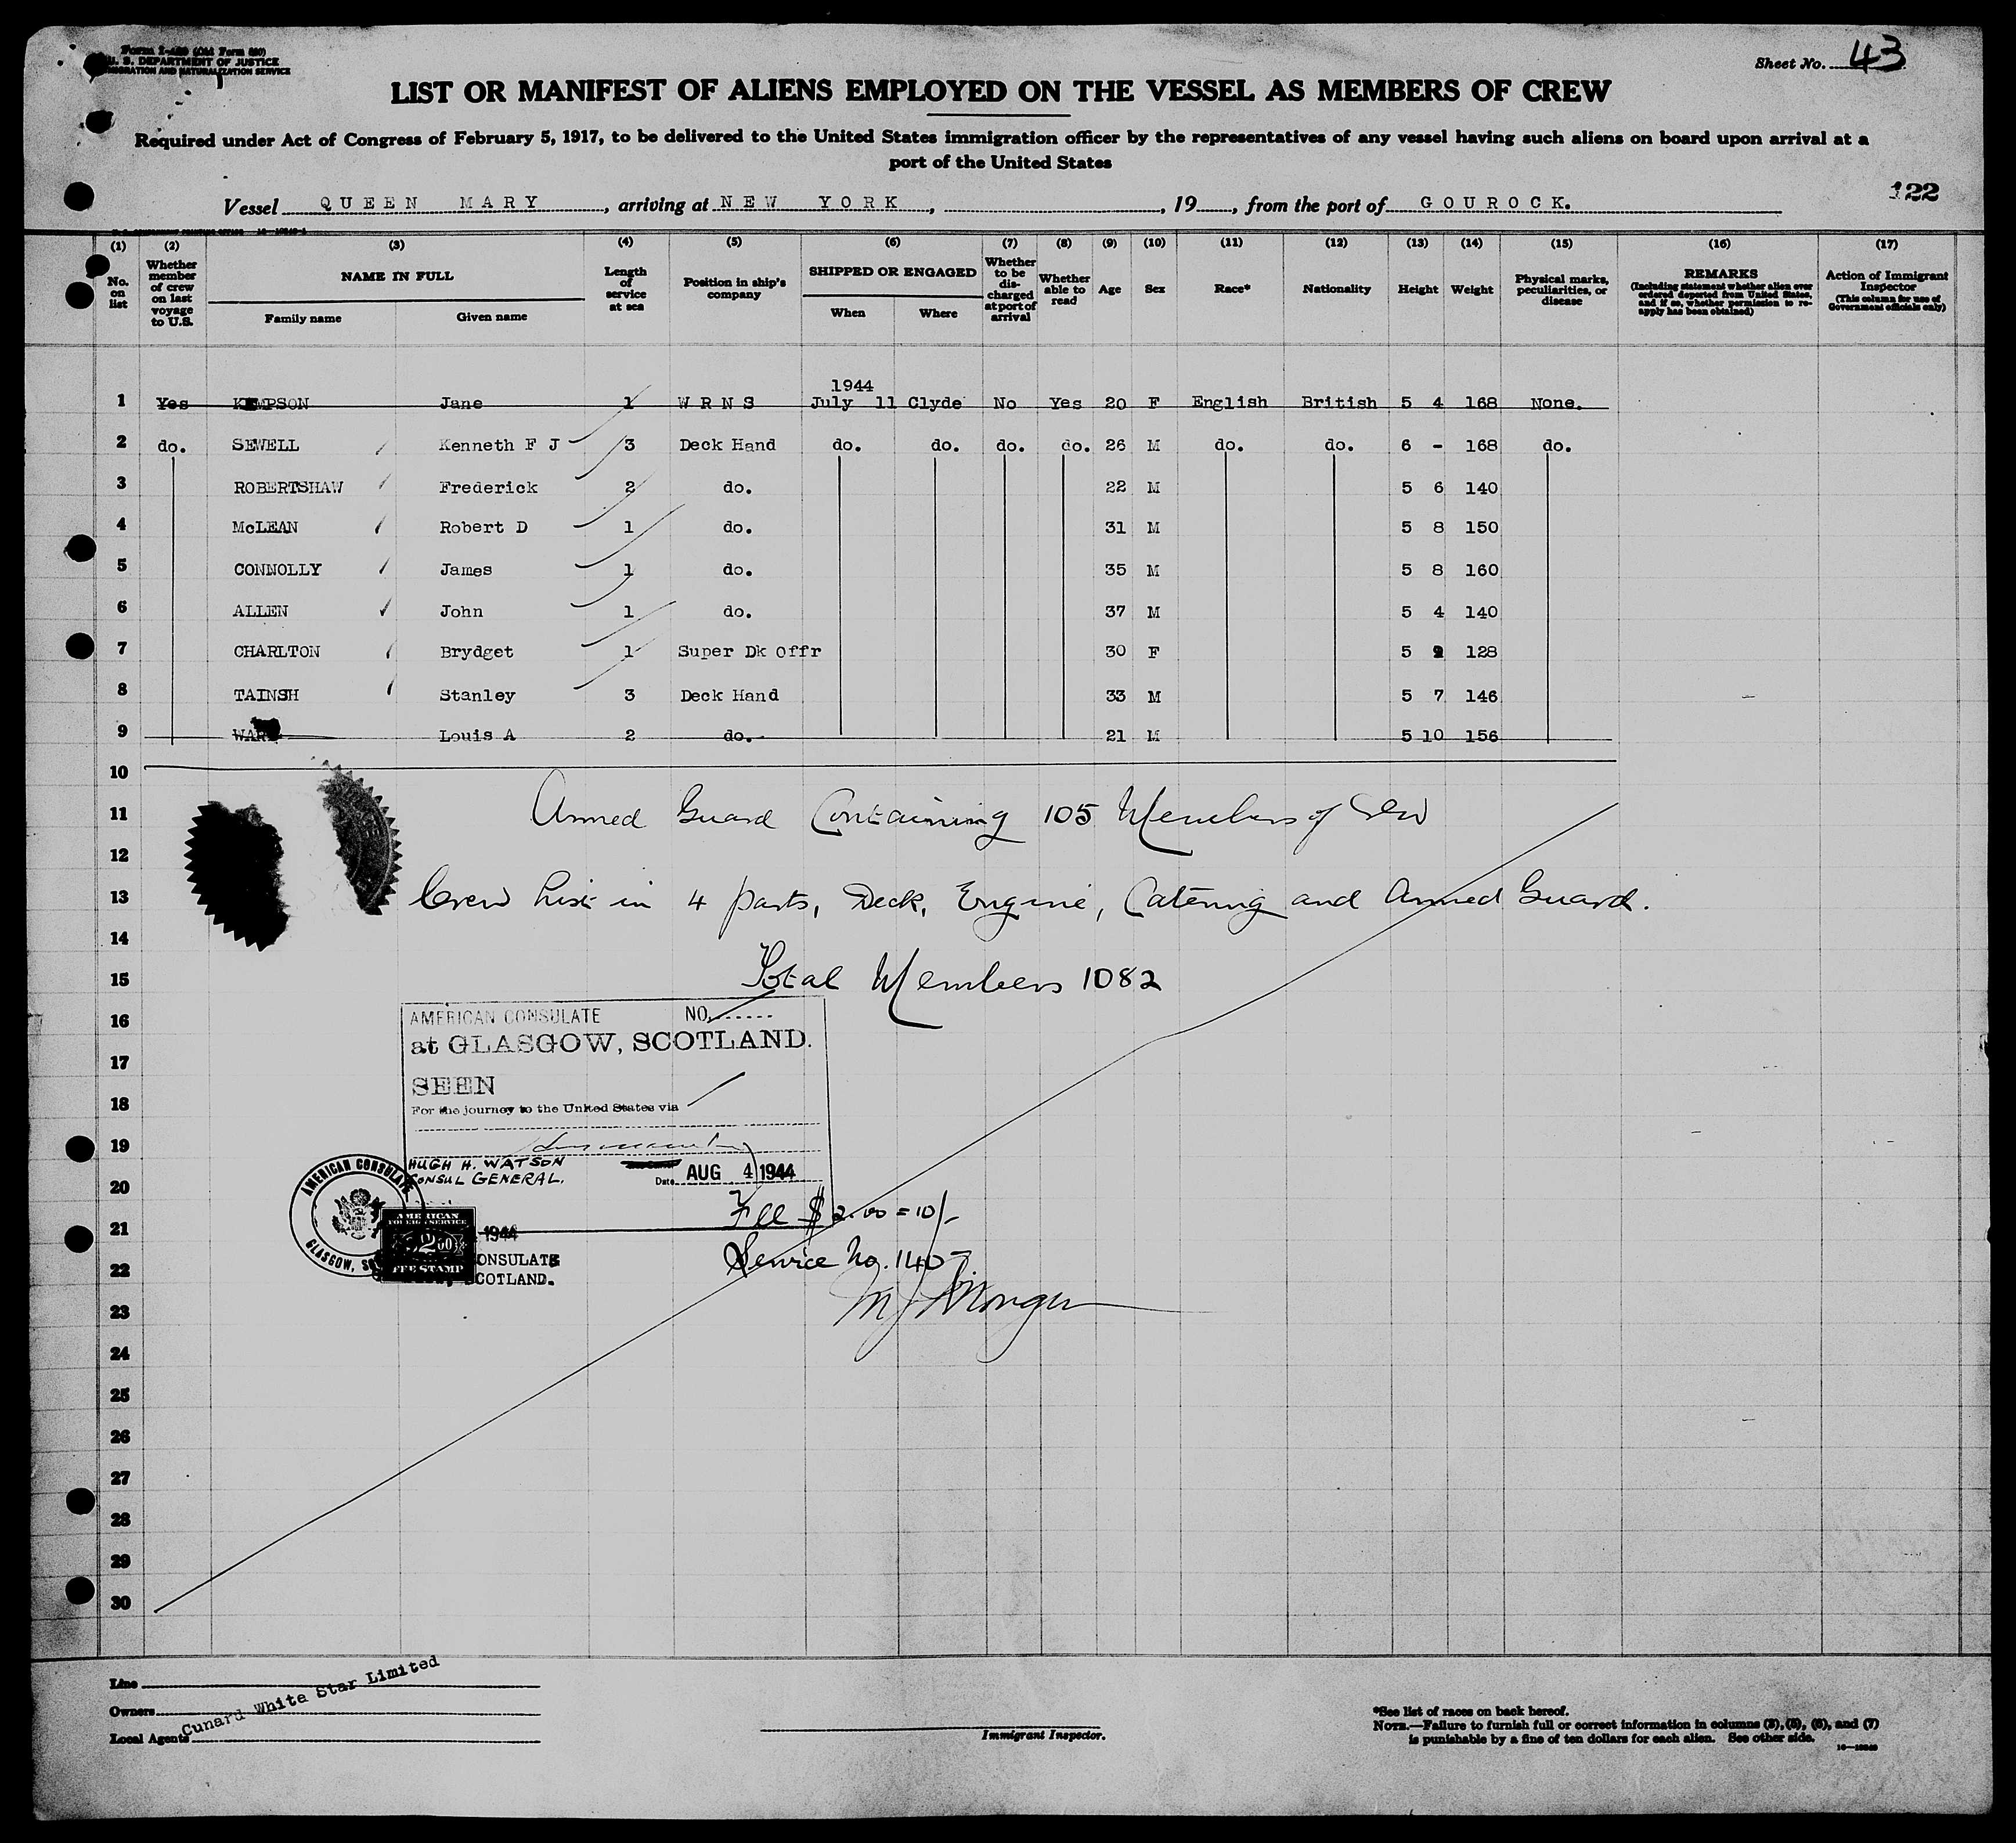 Form I-480 (Old Form 680)
U. S. DEPARTMENT OF JUSTICE
IMMIGRATION AND NATURALIZATION SERVICE
Sheet No. 43
LIST OR MANIFEST OF ALIENS EMPLOYED ON THE VESSEL AS MEMBERS OF CREW
Required under Act of Congress of February 5, 1917, to be delivered to the United States immigration officer by the representatives of any vessel having such aliens on board upon arrival at a
port of the United States
122
Vessel QUEEN MARY, arriving at NEW YORK, , 19 , from the port of GOUROCK.
(1) (2) (3) (4) (5) (6) (7) (8) (9) (10) (11) (12) (13) (14) (15) (16) (17)
No. on list
Whether member of crew on last voyage to U.S.
NAME IN FULL
Family name
Given name
Length of service at sea
Position in ship's company
SHIPPED OR ENGAGED
When
Where
Whether to be discharged at port of arrival
Whether able to read
Age
Sex
Race*
Nationality
Height
Weight
Physical marks, peculiarities, or disease
REMARKS
(Including statement whether alien ever ordered deported from United States, and if so, whether permission to reapply has been obtained)
Action of Immigrant Inspector
(This column for use of Government officials only)
1944
1 Yes KEMPSON Jane 1 W R N S July 11 Clyde No Yes 20 F English British 5 4 168 None.
2 do. SEWELL Kenneth F J 3 Deck Hand do. do. do. do. 26 M do. do. 6 - 168 do.
3 ROBERTSHAW Frederick 2 do. 22 M 5 6 140
4 McLEAN Robert D 1 do. 31 M 5 8 150
5 CONNOLLY James 1 do. 35 M 5 8 160
6 ALLEN John 1 do. 37 M 5 4 140
7 CHARLTON Brydget 1 Super Dk Offr 30 F 5 128
8 TAINSH Stanley 3 Deck Hand 33 M 5 7 146
9 Louis A 2 do. 21 M 5 10 156
10
11 Armed Guard Containing 105 Members of Crew
12
13 Crew List in 4 parts, Deck, Engine, Catering and Armed Guard.
14
15 Total Members 1082
16 AMERICAN CONSULATE NO.
at GLASGOW, SCOTLAND.
17
SEEN
18 For the journey to the United States via
19
HUGH H. WATSON
CONSUL GENERAL.
Date AUG 4 1944
20
AMERICAN CONSULATE
GLASGOW,
Fee $2.00 = 10/-
21
AMERICAN
FOREIGN SERVICE
$2.00
FEE STAMP
1944
CONSULATE
SCOTLAND.
Service No. 140
22
23
24
25
26
27
28
29
30
Line
Owners
Local Agents
Cunard White Star Limited
Immigrant Inspector.
*See list of races on back hereof.
NOTE.—Failure to furnish full or correct information in columns (3), (5), (6), and (7)
is punishable by a fine of ten dollars for each alien. See other side.